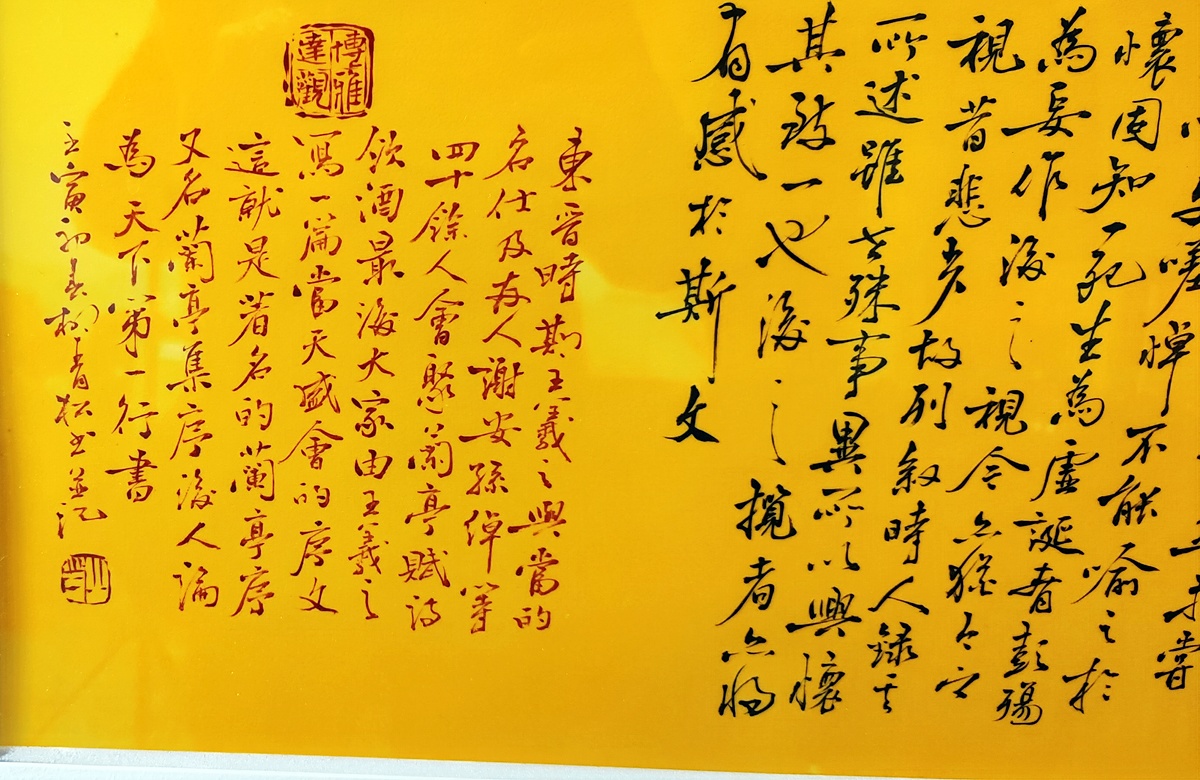 嘗
嗟悼不能喻之於
懷固知一死生為虛誕齊彭殤
為妄作後之視今亦猶今之
視昔悲夫故列敘時人錄其
所述雖世殊事異所以興懷
其致一也後之攬者亦將
有感於斯文
東晉時期王羲之與當的
名仕及友人謝安孫綽等
四十餘人會聚蘭亭賦詩
飲酒最後大家由王羲之
寫一篇當天盛會的序文
這就是著名的蘭亭序
又名蘭亭集序後人論
為天下第一行書
壬寅初春柳青松書並記
博雅達觀